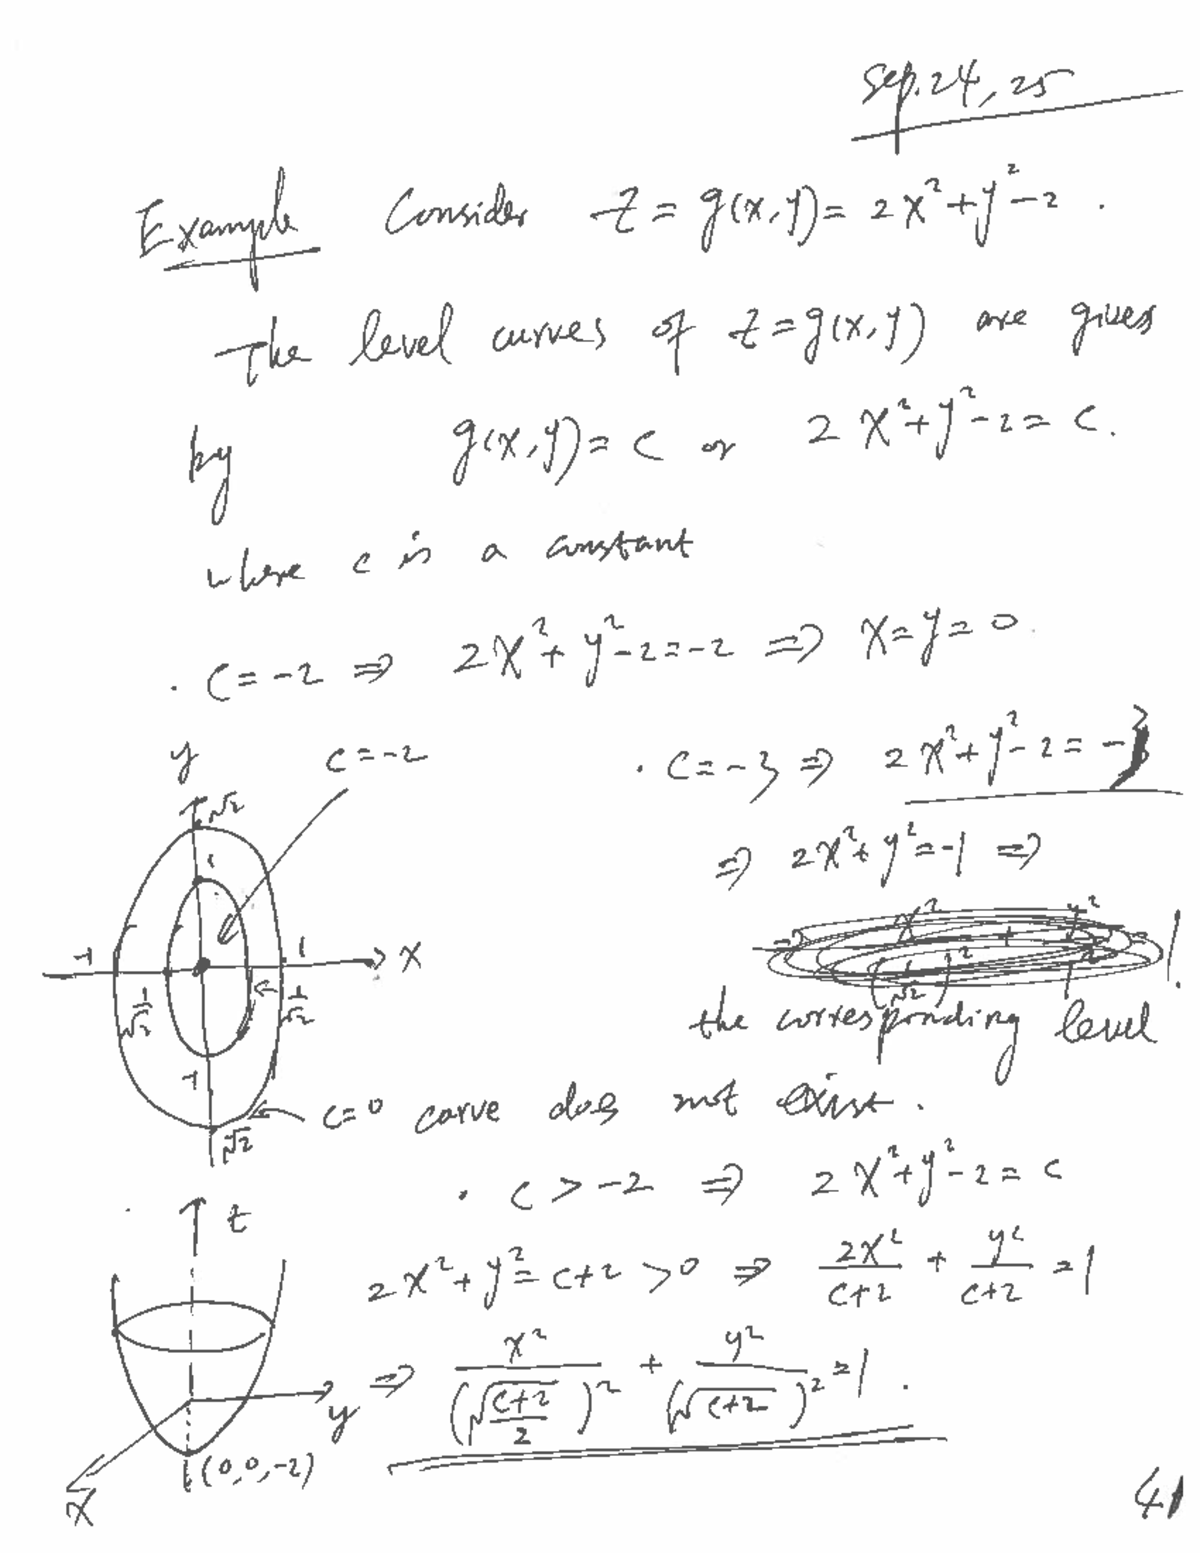 Sep. 24, 25
Example Consider z = g(x,y) = 2x² + y² - 2 .
The level curves of z = g(x,y) are gives
by g(x,y) = c or 2x² + y² - 2 = c.
where c is a constant
· c = -2 ⇒ 2x² + y² - 2 = -2 ⇒ x = y = 0.
y c = -2
· c = -3 ⇒ 2x² + y² - 2 = -3
√2
⇒ 2x² + y² = -1 ⇒
1
-1 1 x
1/√2 1/√2
the corresponding level
-1
c = 0 curve does not exist.
√2
· c > -2 ⇒ 2x² + y² - 2 = c
z
2x² + y² = c+2 > 0 ⇒ 2x²/(c+2) + y²/(c+2) = 1
⇒ x²/(√((c+2)/2))² + y²/(√(c+2))² = 1.
y
(0,0,-2)
x
41